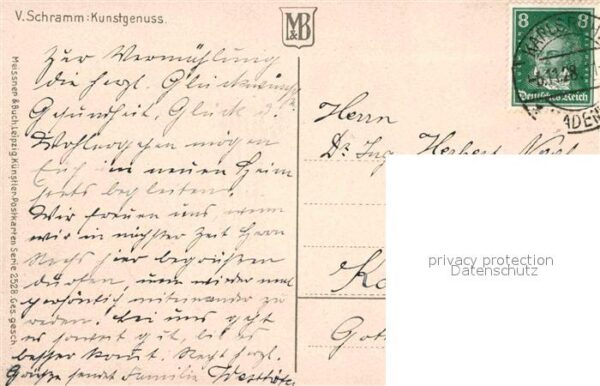 V. Schramm: Kunstgenuss.
M&B
Meissner & Buch, Leipzig, Künstler-Postkarten Serie 2528. Ges. gesch.
Zur Vermählung
die herzl. Glückwünsche
Gesundheit, Glück u.
Wohlergehen mögen
Euch im neuen Heim
stets begleiten.
Wir freuen uns, wenn
wir in nächster Zeit Herrn
hier begrüßen
dürfen, um wieder mal
persönlich miteinander zu
reden. Bei uns geht
es soweit gut, bis es
besser kommt. Recht herzl.
Grüße sendet Familie
8 8
Deutsches Reich
KARLSRUHE
BADEN
Herrn
Dr. Ing. Herbert
privacy protection
Datenschutz